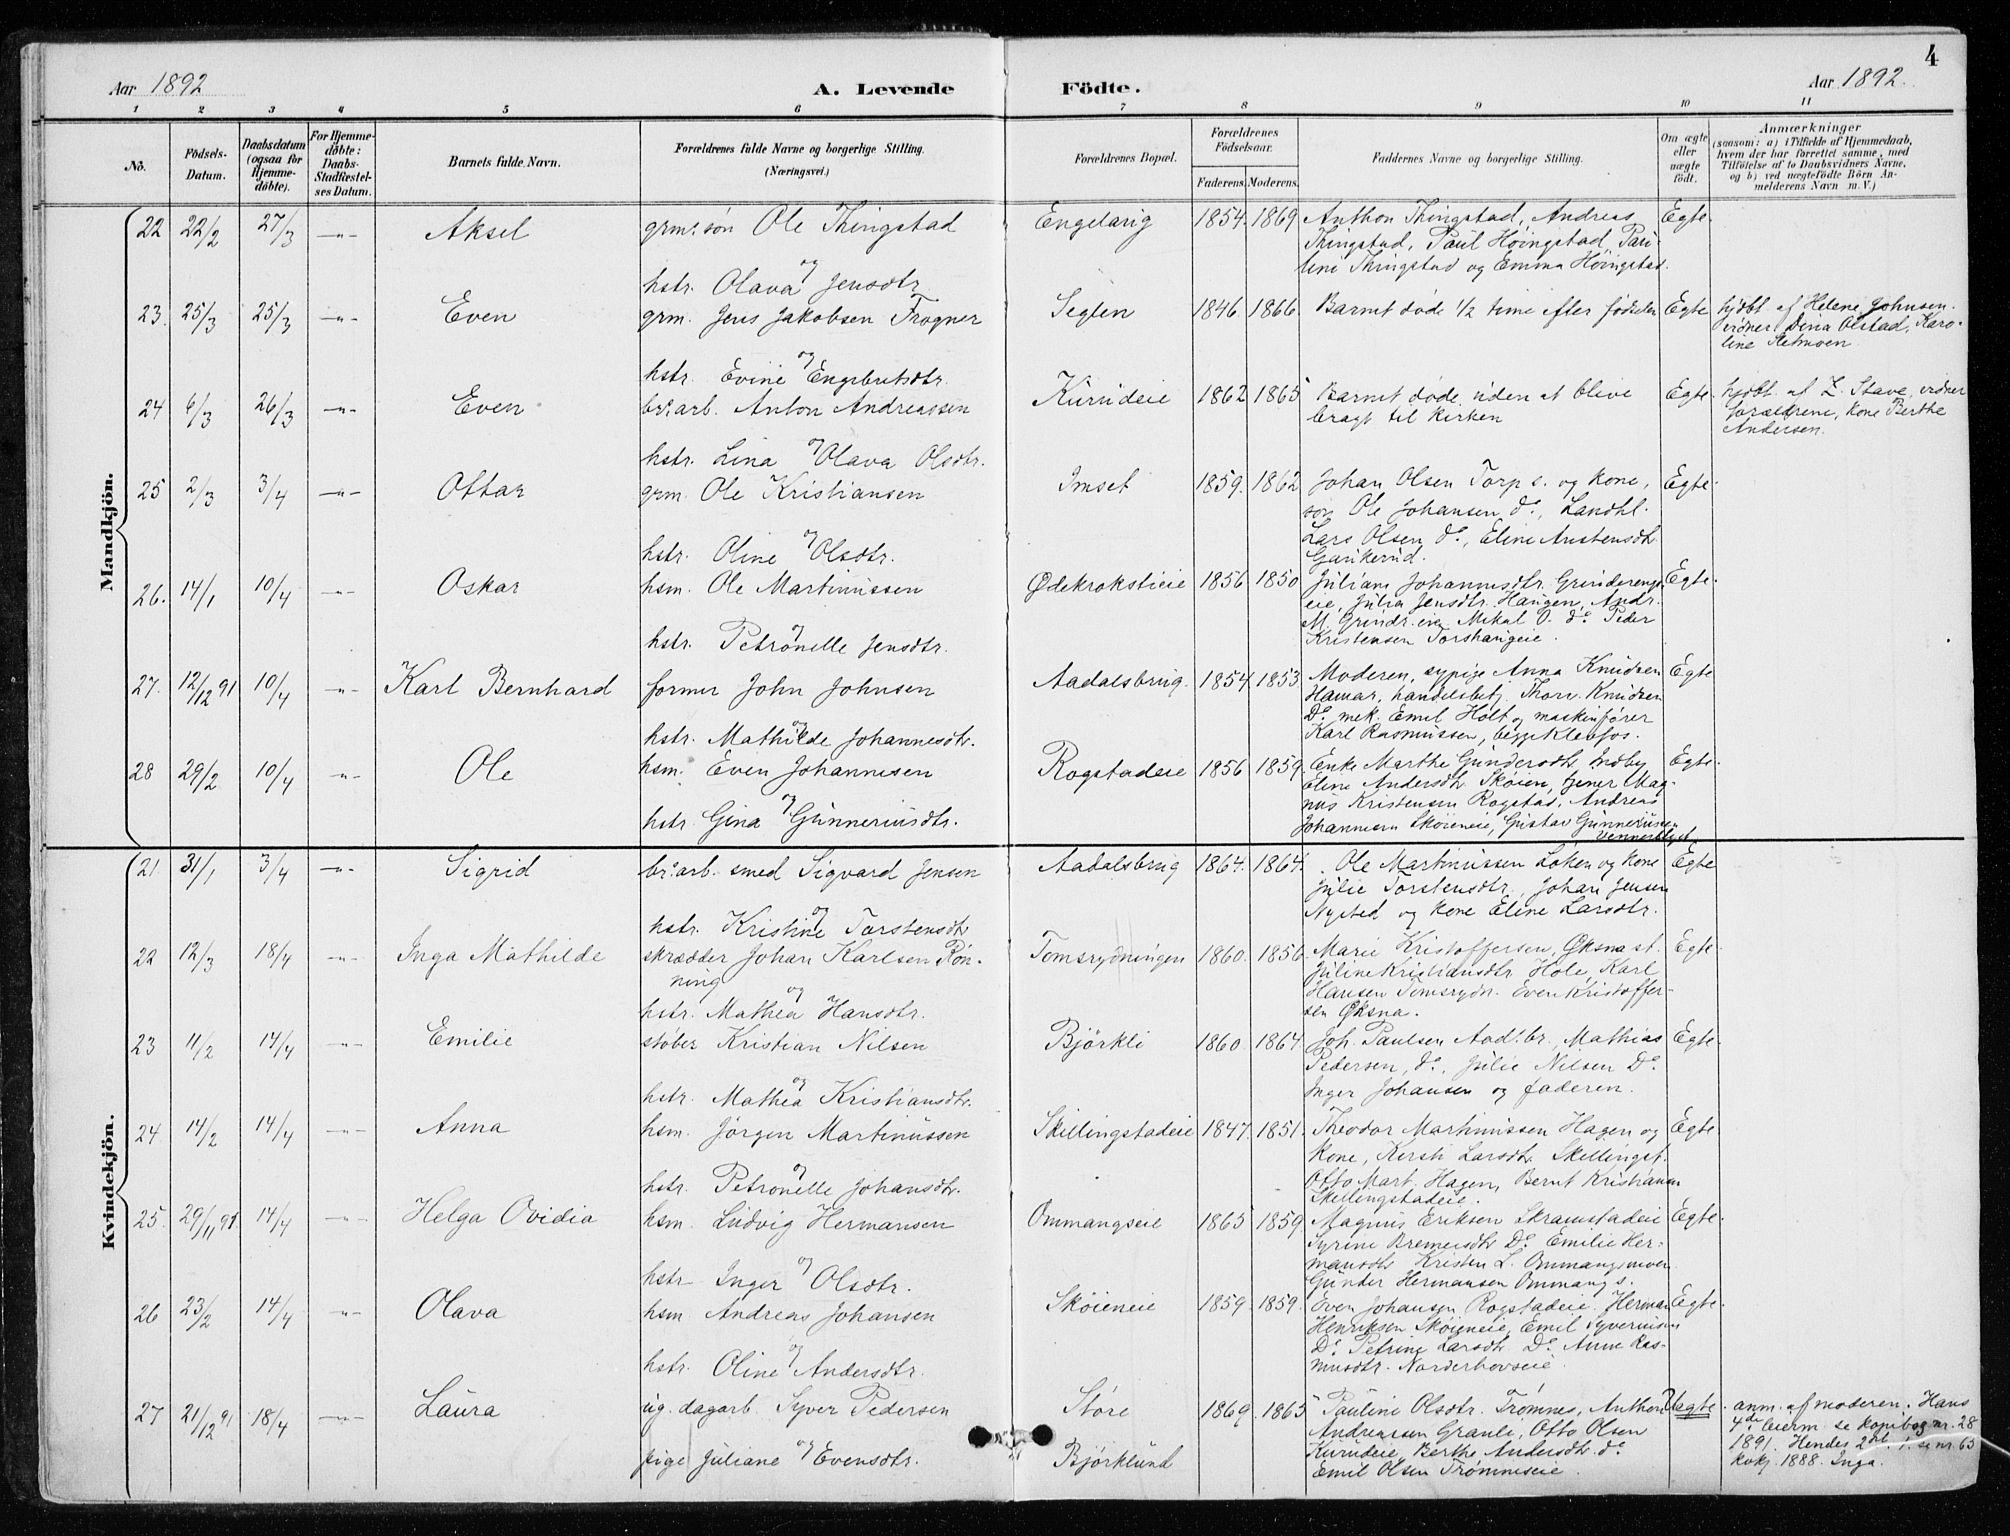 4
Aar 1892 A. Levende Födte. Aar 1892.
1 2 3 4 5 6 7 8 9 10 11
No. Födsels-Datum. Daabsdatum (ogsaa for Hjemme-døbte). For Hjemme-døbte: Daabs-Stadfæstel-ses Datum. Barnets fulde Navn. Forældrenes fulde Navne og borgerlige Stilling. (Næringsvei.) Forældrenes Bopæl. Forældrenes Födselsaar. Faderens. Moderens. Faddernes Navne og borgerlige Stilling. Om ægte eller uægte født. Anmærkninger (saasom: a) i Tilfælde af Hjemmedaab, hvem der har forrettet samme, med Tilföielse af to Daabsvidners Navne, og b) ved uægtefödte Börn An-melderens Navn m. V.)
Mandkjön.
22 22/2 27/3 -"- Aksel grm.søn Ole Thingstad Engelaug 1854. 1869 Anthon Thingstad, Andreas Egte
Thingstad, Paul Høingstad,
og Thingstad og Emma Høingstad.
hstr. Olava Jensdtr.
23. 25/3 25/3 -"- Even grm. Jens Jakobsen Frogner Seglen 1846. 1866 Barnet døde 1/2 time efter fødselen Egte hjdbt. af Helene Johnsen.
vidner Dina Olstad, Karo-
og line
hstr. Evine Engebretsdtr.
24 6/3 26/3 -"- Even br.arb. Anton Andreassen Kurudeie 1862 1865 Barnet døde uden at blive Egte hjdbt af Z. Stave, vidner
bragt til kirken forældrene, kone Berthe
Andersen.
og
hstr. Lina Olava Olsdtr.
25 2/3 3/4 -"- Ottar grm. Ole Kristiansen Imset 1859. 1862 Johan Olsen Torp s. og kone, Egte
søn Ole Johansen do, Landhl.
og Lars Olsen do, Eline Austensdtr.
hstr. Oline Olsdtr. Gaukerud.
26. 14/1 10/4 -"- Oskar hsm. Ole Martinussen Ødekrokstieie 1856 1850 Juliane Johannesdtr. Grinderengs Egte
eie, Julia Jensdtr. Haugen, Andr.
og M. Grindr.eie Mikal O. do Peder
hstr. Petronelle Jensdtr. Kristensen Torshaugeie.
27. 12/12 91 10/4 -"- Karl Bernhard former John Johnsen Aadalsbrug. 1854 1853 Moderen, sypige Anna Knudsen Egte
Hamar, handelsbetj. Thorv. Knudsen
og Do mek. Emil Holt og maskinfører
hstr. Mathilde Johannesdtr. Karl Rasmussen, begge Klevfos.
28 29/2 10/4 -"- Ole hsm. Even Johannesen Rogstadeie 1856 1859. Enke Marthe Gundersdtr. Indby Egte
Eline Andersdtr Skøien, tjener Mag-
og nus Kristensen Rogstad, Andreas
hstr. Gina Gunneriusdtr. Johannesen Skøieneie, Gustav Gunneriussen
Kvindekjön.
21. 31/1 3/4 -"- Sigrid br.arb. smed Sigvard Jensen Aadalsbrug 1864. 1864. Ole Martinussen Løken og kone Egte
Julie Torstensdtr, Johan Jensen
og Nysted og kone Eline Larsdtr.
hstr. Kristine Torstensdtr
22 12/3 18/4 -"- Inga Mathilde skrædder Johan Karlsen Røn- Tomsrydningen 1860. 1856 Marie Kristoffersen, Øksna st. Egte
ning Juline Kristiansdtr Hole, Karl
og Hansen Tomsrydn. Even Kristoffer-
hstr. Mathea Hansdtr. sen Øksna.
23 11/2 14/4 -"- Emilie støber Kristian Nilsen Björkli 1860. 1864. Joh. Paulsen Aad.br. Mathias Egte
Pedersen, do, Julie Nilsen Do
og Inger Johansen og faderen.
hstr. Mathea Kristiansdtr.
24 14/2 14/4 -"- Anna hsm. Jörgen Martinussen Skillingstadeie 1847. 1851. Theodor Martinussen Hagen og Egte
kone, Kersti Larsdtr Skellingst.
og Otto Mart. Hagen, Bernt Kristiansen
hstr. Petronelle Johansdtr. Skellingstadeie.
25. 29/11 91. 14/4 -"- Helga Ovidia hsm. Ludvig Hermansen Ommangseie 1865 1859 Magnus Eriksen Skramstadeie Egte
Syrine Bremersdtr Do Emilie Her-
og mansdtr Kristen L. Ommangsmoen
hstr Inger Olsdtr. Gunder Hermansen Ommangs.
26 23/2 14/4 -"- Olava hsm. Andreas Johansen Skøieneie 1859. 1859. Even Johansen Rogstadeie, Herman Egte
Henriksen Skøieneie, Emil Syveriusen
og Do Petrine Larsdtr Do Anne Ras-
hstr. Oline Andersdtr. musdtr. Norderhovseie.
27 21/12 91 18/4 -"- Laura ug. dagarb. Syver Pedersen Støre 1869. 1865 Pauline Olsdtr. Trømnes, Anthon Uegte anm. af moderen. Hans
Andreassen Graule, Otto Olsen 4de leierm. se kopibog nr. 28
og Kurudeie, Berthe Andersdtr do 1891. Hendes 2det i. se nr. 63
pige Juliane Evensdtr. Björklund Emil Olsen Trømneseie. kvkj. 1888. Inga.